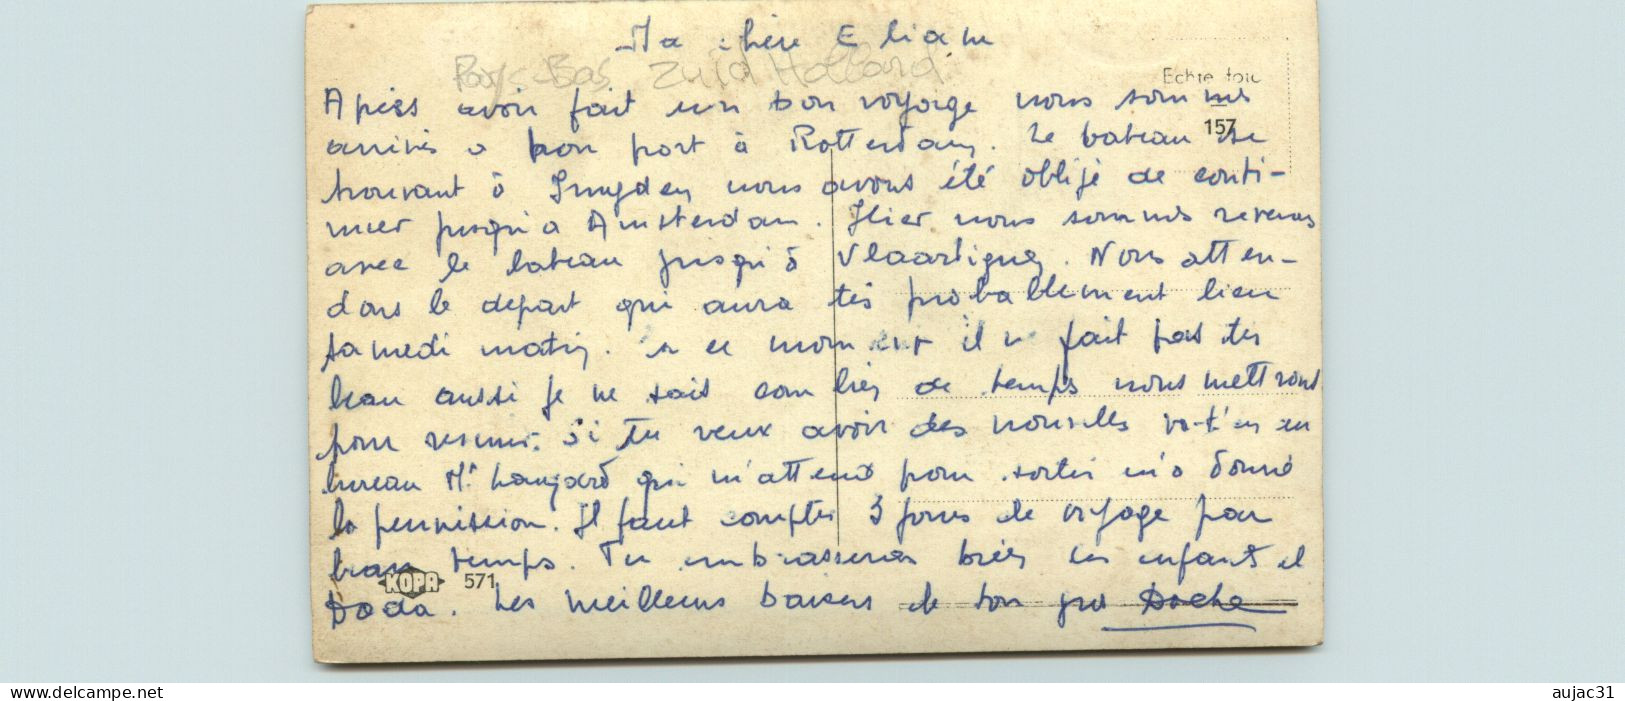 Ma chère Eliane
Pays-Bas Zuid Holland
Echte foto
Après avoir fait un bon voyage nous sommes
157
arrivés a bon port à Rotterdam. Le bateau se
trouvant à nous avons été obligé de conti-
nuer jusqu'a Amsterdam. Hier nous sommes revenus
avec le bateau jusqu'à Vlaardiguen. Nous atten-
dons le depart qui aura tès probablement lieu
samedi matin. a ce moment il n fait pas tès
beau aussi je ne sais combien de temps nous mettrons
pour revenir. Si tu veux avoir des nouvelles va-t'en au
bureau Mr qui m'attend pour sortir m'a donné
la permission. Il faut compter 3 jours de voyage par
beau temps. Tu embrasseras bien les enfants et
KOPA 571
Doda. Les meilleurs baisers de ton gros Doche
www.delcampe.net
aujac31